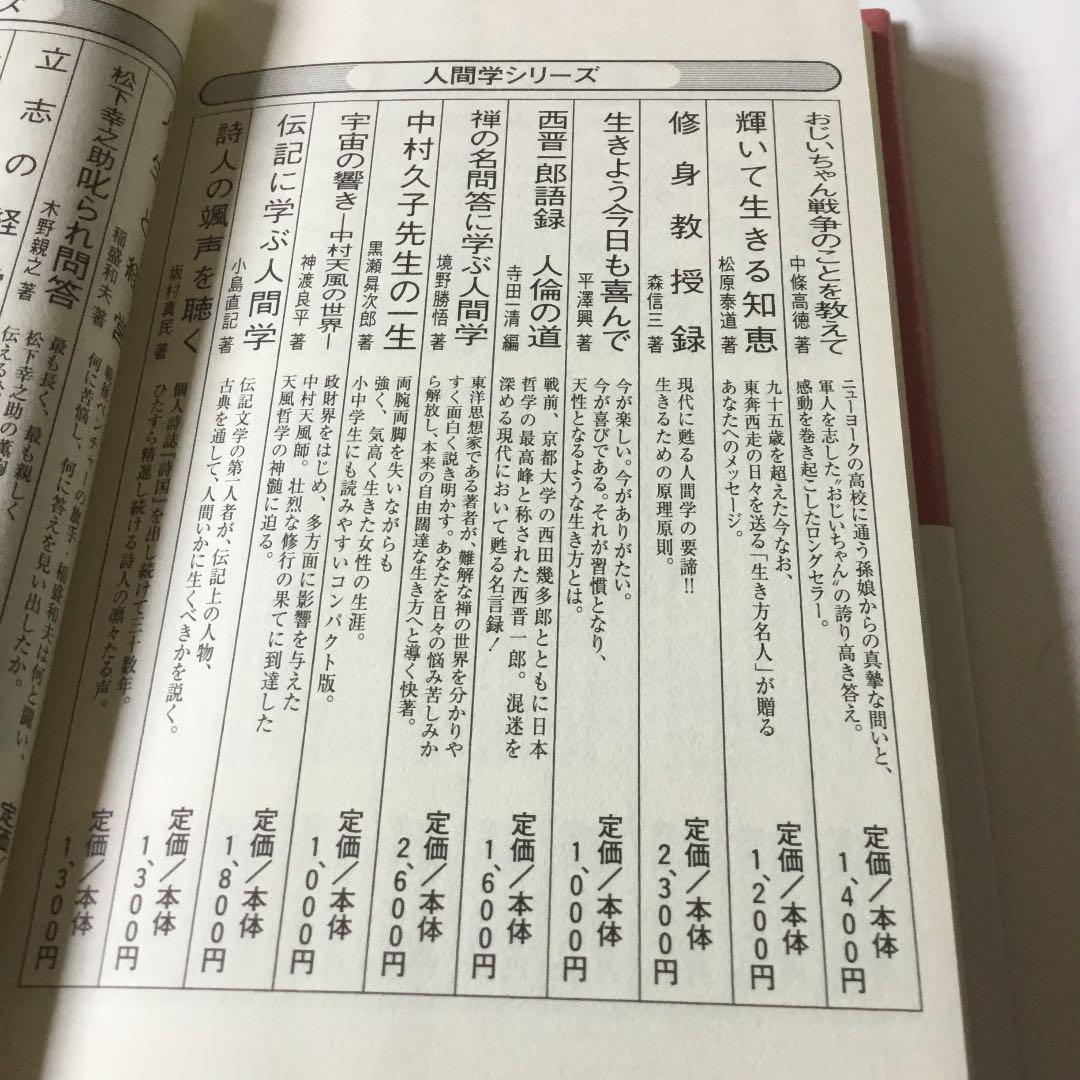 人間学シリーズ
おじいちゃん戦争のことを教えて
中條高德 著
ニューヨークの高校に通う孫娘からの真摯な問いと、
軍人を志した〝おじいちゃん〟の誇り高き答え。
感動を巻き起こしたロングセラー。
定価/本体
1,400円
輝いて生きる知恵
松原泰道 著
九十五歳を超えた今なお、
東奔西走の日々を送る「生き方名人」が贈る
あなたへのメッセージ。
定価/本体
1,200円
修身教授録
森信三 著
現代に甦る人間学の要諦!!
生きるための原理原則。
定価/本体
2,300円
生きよう今日も喜んで
平澤興 著
今が楽しい。今がありがたい。
今が喜びである。それが習慣となり、
天性となるような生き方とは。
定価/本体
1,000円
西晋一郎語録 人倫の道
寺田一清 編
戦前、京都大学の西田幾多郎とともに日本
哲学の最高峰と称された西晋一郎。混迷を
深める現代において甦る名言録!
定価/本体
1,600円
禅の名問答に学ぶ人間学
境野勝悟 著
東洋思想家である著者が、難解な禅の世界を分かりや
すく面白く説き明かす。あなたを日々の悩み苦しみか
ら解放し、本来の自由闊達な生き方へと導く快著。
定価/本体
2,600円
中村久子先生の一生
黒瀬曻次郎 著
両腕両脚を失いながらも
強く、気高く生きた女性の生涯。
小中学生にも読みやすいコンパクト版。
定価/本体
1,000円
宇宙の響き―中村天風の世界―
神渡良平 著
政財界をはじめ、多方面に影響を与えた
中村天風師。壮烈な修行の果てに到達した
天風哲学の神髄に迫る。
定価/本体
1,800円
伝記に学ぶ人間学
小島直記 著
伝記文学の第一人者が、伝記上の人物、
古典を通して、人間いかに生くべきかを説く。
定価/本体
1,300円
詩人の颯声を聴く
坂村真民 著
個人詩誌『詩国』を出し続けて三十数年。
ひたすら精進し続ける詩人の凛々たる声。
定価/本体
1,300円
ズ
稲盛和夫 著
の旗手・稲盛和夫は何と闘い、
何に苦悩し、何に答えを見い出したか。
松下幸之助叱られ問答
木野親之 著
最も長く、最も親しく
松下幸之助の薫陶
伝える
立志の経
定価